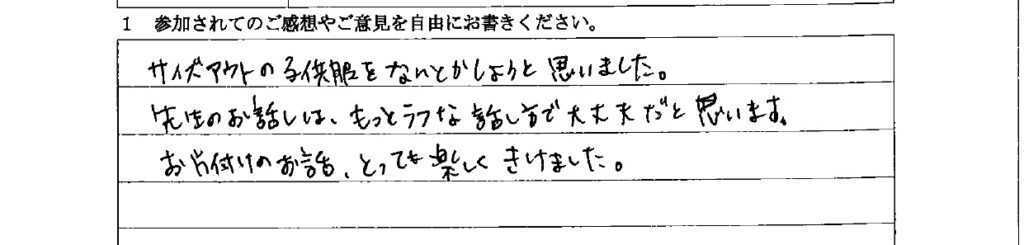 1 参加されてのご感想やご意見を自由にお書きください。
サイズアウトの子供服をなんとかしようと思いました。
先生のお話しは、もっとラフな話し方で大丈夫だと思います。
お片付けのお話、とっても楽しくきけました。